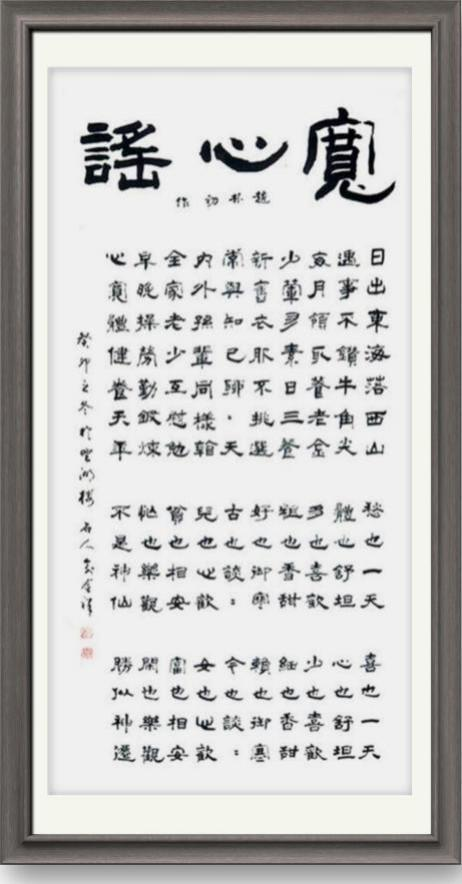 寬心謠
趙朴初作
日出東海落西山 愁也一天 喜也一天
遇事不鑽牛角尖 體也舒坦 心也舒坦
每月領取養老金 多也喜歡 少也喜歡
少葷多素日三餐 粗也香甜 細也香甜
新舊衣服不挑選 好也御寒 賴也御寒
常與知己聊〻天 古也談〻 今也談〻
內外孫輩同樣看 兒也心歡 女也心歡
全家老少互慰勉 貧也相安 富也相安
早晚操勞勤鍛煉 忙也樂觀 閑也樂觀
心寬體健養天年 不是神仙 勝似神僊
癸卯之冬於望湖樓